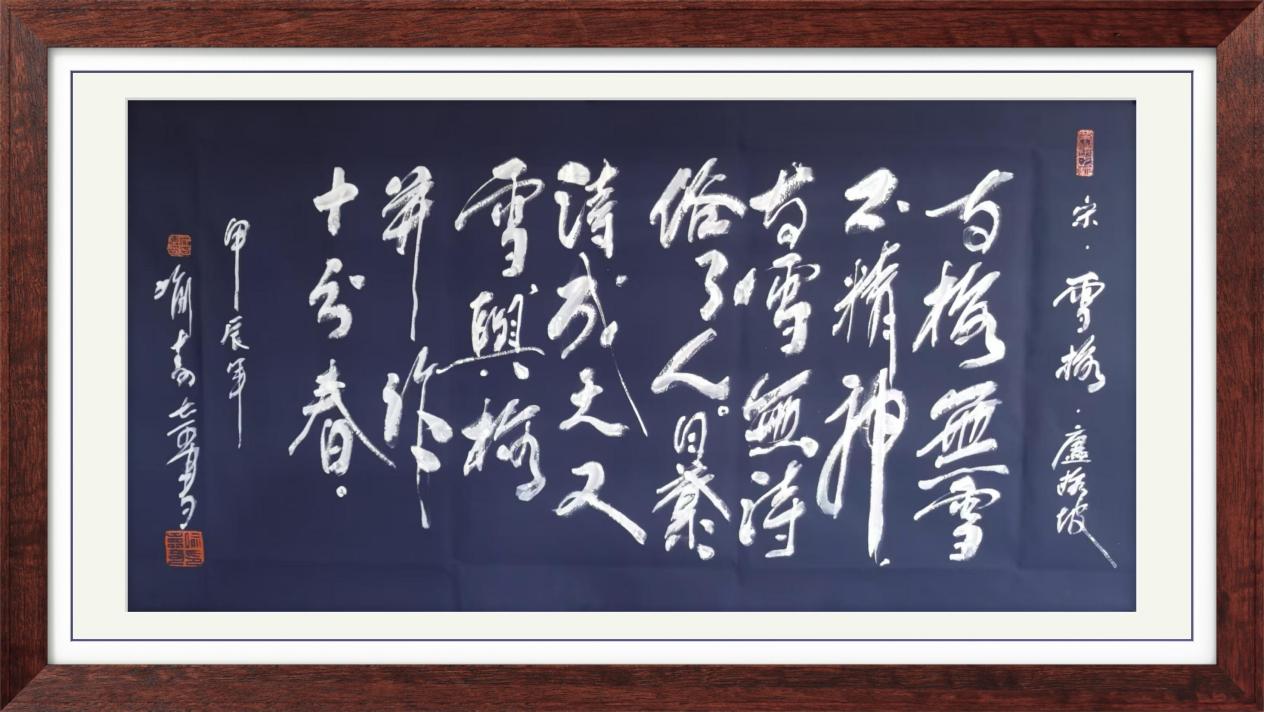 宋·雪梅·盧梅坡
有梅無雪
不精神
有雪無詩
俗了人。日暮
詩成天又
雪與梅
并作
十分春。
甲辰年